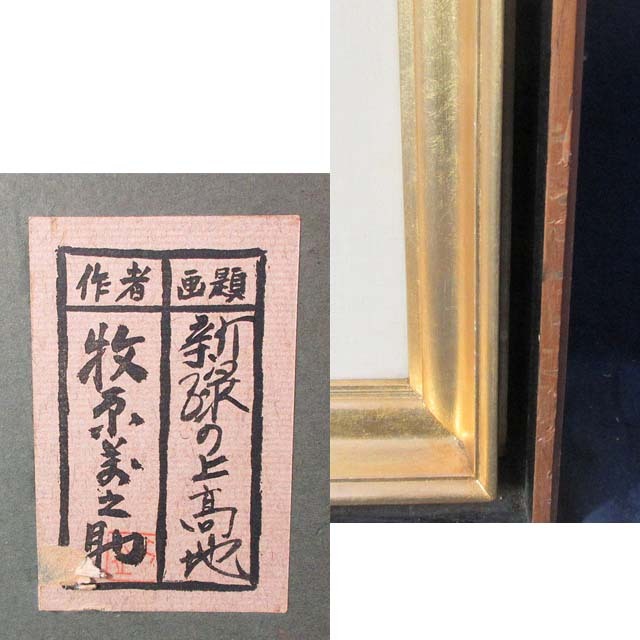 画題
新緑の上高地
作者
牧原義之助